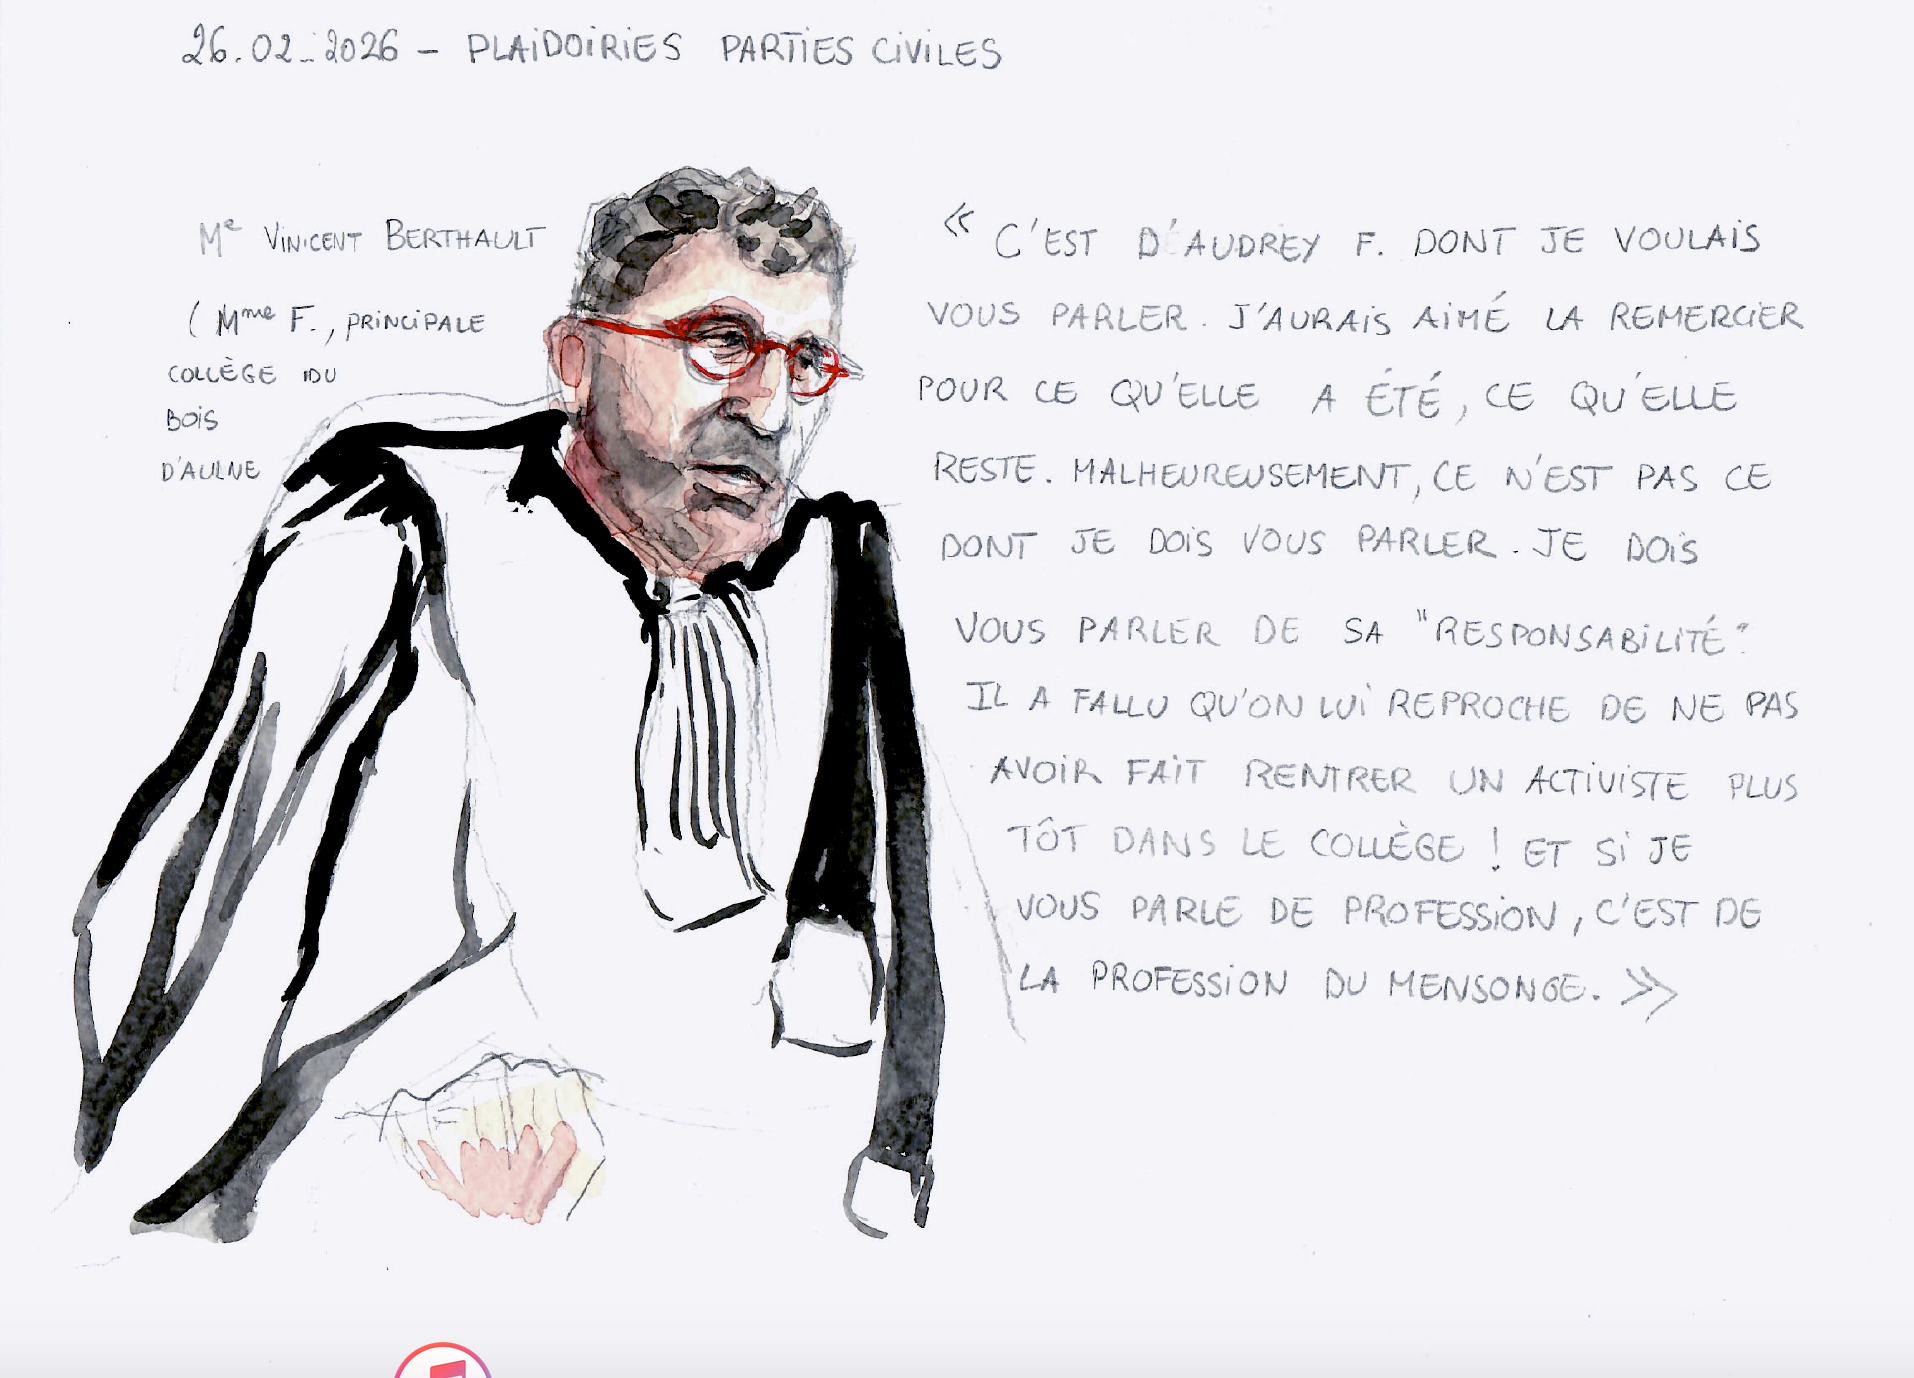 26.02.2026 – PLAIDOIRIES PARTIES CIVILES
Me VINICENT BERTHAULT
(Mme F., PRINCIPALE
COLLÈGE DU
BOIS
D'AULNE
« C'EST D'AUDREY F. DONT JE VOULAIS
VOUS PARLER. J'AURAIS AIMÉ LA REMERCIER
POUR CE QU'ELLE A ÉTÉ, CE QU'ELLE
RESTE. MALHEUREUSEMENT, CE N'EST PAS CE
DONT JE DOIS VOUS PARLER. JE DOIS
VOUS PARLER DE SA "RESPONSABILITÉ".
IL A FALLU QU'ON LUI REPROCHE DE NE PAS
AVOIR FAIT RENTRER UN ACTIVISTE PLUS
TÔT DANS LE COLLÈGE ! ET SI JE
VOUS PARLE DE PROFESSION, C'EST DE
LA PROFESSION DU MENSONGE. »